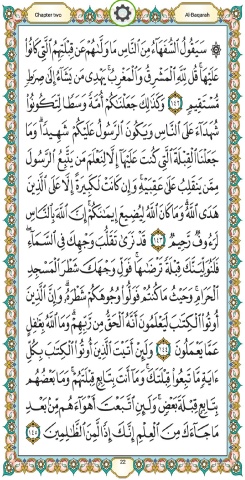 Chapter two
Al-Baqarah
سَيَقُولُ السُّفَهَاءُ مِنَ النَّاسِ مَا وَلَّاهُمْ عَن قِبْلَتِهِمُ الَّتِي كَانُوا
عَلَيْهَا قُل لِّلَّهِ الْمَشْرِقُ وَالْمَغْرِبُ يَهْدِي مَن يَشَاءُ إِلَىٰ صِرَاطٍ
مُّسْتَقِيمٍ ١٤٢ وَكَذَٰلِكَ جَعَلْنَاكُمْ أُمَّةً وَسَطًا لِّتَكُونُوا
شُهَدَاءَ عَلَى النَّاسِ وَيَكُونَ الرَّسُولُ عَلَيْكُمْ شَهِيدًا وَمَا
جَعَلْنَا الْقِبْلَةَ الَّتِي كُنتَ عَلَيْهَا إِلَّا لِنَعْلَمَ مَن يَتَّبِعُ الرَّسُولَ
مِمَّن يَنقَلِبُ عَلَىٰ عَقِبَيْهِ وَإِن كَانَتْ لَكَبِيرَةً إِلَّا عَلَى الَّذِينَ
هَدَى اللَّهُ وَمَا كَانَ اللَّهُ لِيُضِيعَ إِيمَانَكُمْ إِنَّ اللَّهَ بِالنَّاسِ
لَرَءُوفٌ رَّحِيمٌ ١٤٣ قَدْ نَرَىٰ تَقَلُّبَ وَجْهِكَ فِي السَّمَاءِ
فَلَنُوَلِّيَنَّكَ قِبْلَةً تَرْضَاهَا فَوَلِّ وَجْهَكَ شَطْرَ الْمَسْجِدِ
الْحَرَامِ وَحَيْثُ مَا كُنتُمْ فَوَلُّوا وُجُوهَكُمْ شَطْرَهُ وَإِنَّ الَّذِينَ
أُوتُوا الْكِتَابَ لَيَعْلَمُونَ أَنَّهُ الْحَقُّ مِن رَّبِّهِمْ وَمَا اللَّهُ بِغَافِلٍ
عَمَّا يَعْمَلُونَ ١٤٤ وَلَئِنْ أَتَيْتَ الَّذِينَ أُوتُوا الْكِتَابَ بِكُلِّ
ءَايَةٍ مَّا تَبِعُوا قِبْلَتَكَ وَمَا أَنتَ بِتَابِعٍ قِبْلَتَهُمْ وَمَا بَعْضُهُم
بِتَابِعٍ قِبْلَةَ بَعْضٍ وَلَئِنِ اتَّبَعْتَ أَهْوَاءَهُم مِّن بَعْدِ
مَا جَاءَكَ مِنَ الْعِلْمِ إِنَّكَ إِذًا لَّمِنَ الظَّالِمِينَ ١٤٥
22